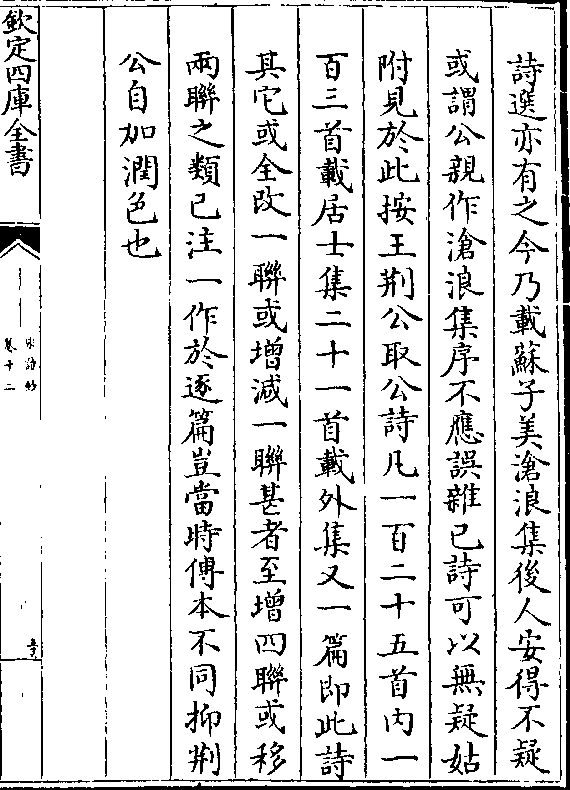 詩選亦有之今乃載蘇子美滄浪集後人安得不疑
或謂公親作滄浪集序不應誤雜已詩可以無疑姑
附見於此按王荆公取公詩凡一百二十五首内一
百三首載居士集二十一首載外集又一篇即此詩
其它或全改一聯或增减一聯甚者至增四聯或移
兩聯之類已注一作於逐篇豈當時傳本不同抑荆
公自加潤色也
欽定四庫全書
宋詩鈔
卷十二